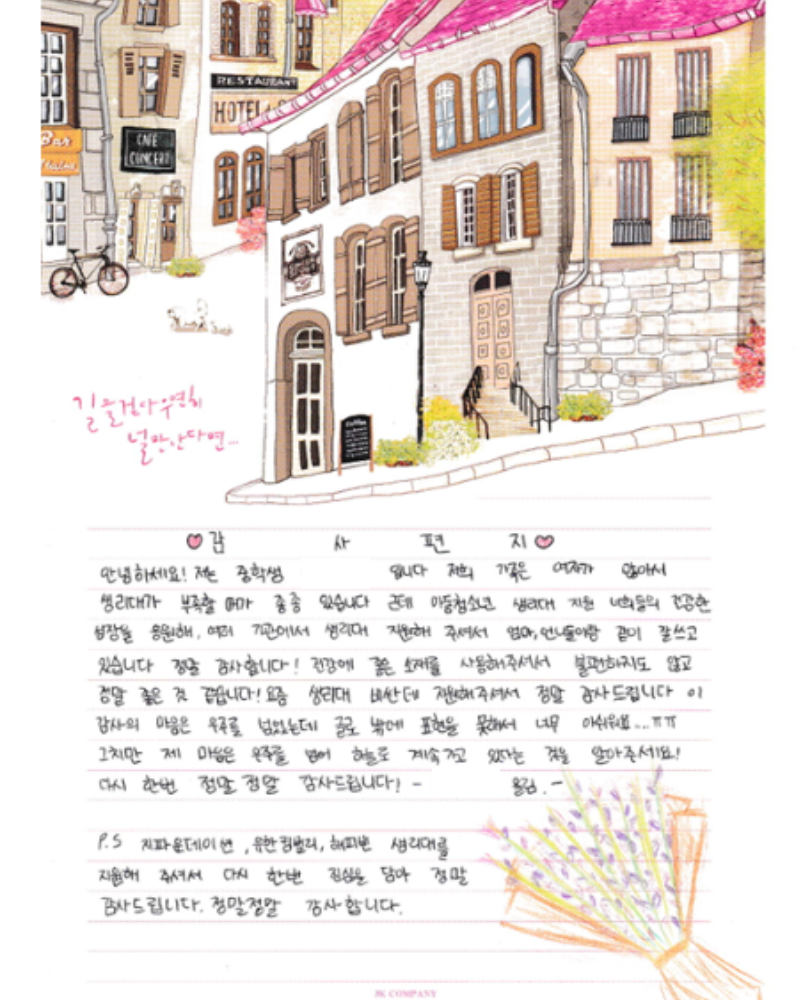 RESTAURANT
HOTEL
Bar
CAFE
CONCERT
길을 걷다 우연히
널 만난다면...
감 사 편 지
안녕하세요! 저는 중학생 입니다 저희 가족은 여자가 많아서
생리대가 부족할 때가 종종 있습니다 근데 아동청소년 생리대 지원 너희들의 건강한
성장을 응원해, 여러 기관에서 생리대 지원해 주셔서 엄마, 언니들이랑 같이 잘쓰고
있습니다 정말 감사합니다! 건강에 좋은 소재를 사용해주셔서 불편하지도 않고
정말 좋은 것 같습니다! 요즘 생리대 비싼데 지원해주셔서 정말 감사드립니다 이
감사의 마음은 우주를 넘었는데 글로 밖에 표현을 못해서 너무 아쉬워요...ㅠㅠ
그치만 제 마음은 우주를 넘어 하늘로 계속가고 있다는 것을 알아주세요!
다시 한번 정말 정말 감사드립니다! - 올림. -
P.S 지파운데이션, 유한킴벌리, 해피빈 생리대를
지원해 주셔서 다시 한번 진심을 담아 정말
감사드립니다. 정말정말 감사합니다.
JK COMPANY